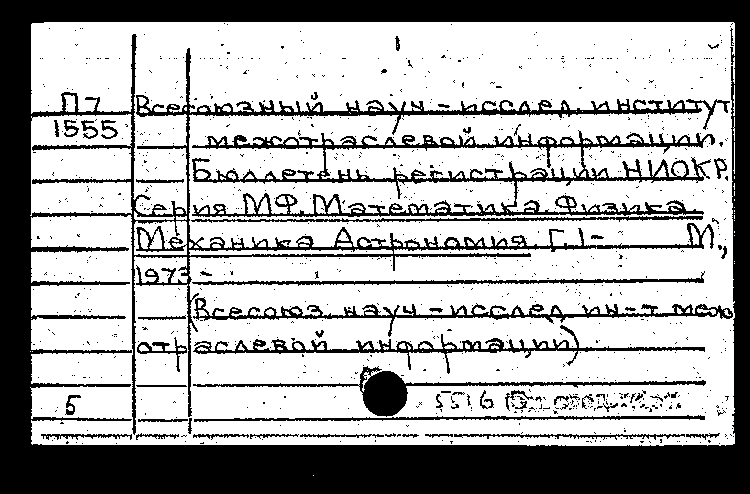 П7 Всесоюзный науч-исслед. институт
1555 межотраслевой информации.
Бюллетень регистрации НИОКР.
Серия МФ. Математика. Физика.
Механика Астрономия. Г.1- М.,
1973-
(Всесоюз. науч-исслед. ин-т меж
отраслевой информации)
5 5516